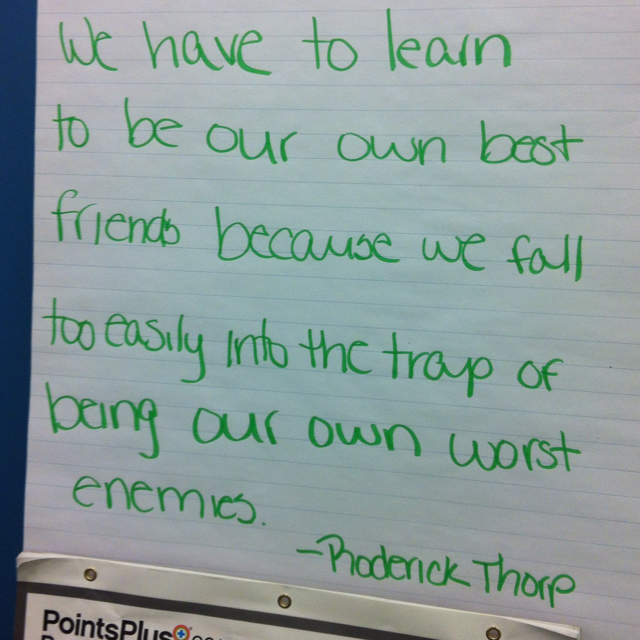 We have to learn
to be our own best
friends because we fall
too easily into the trap of
being our own worst
enemies.
-Roderick Thorp
PointsPlus